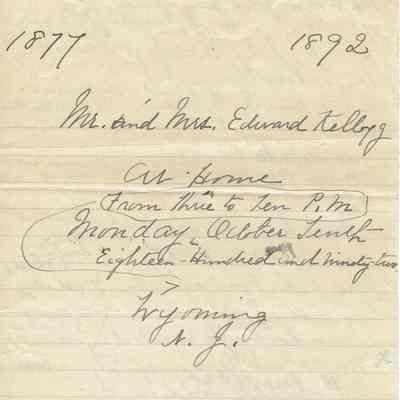 1877 1892
Mr. and Mrs. Edward Kellogg
At Home
From three to Ten P.M
Monday October Tenth
Eighteen-Hundred and Ninety two
Wyoming
N. J.